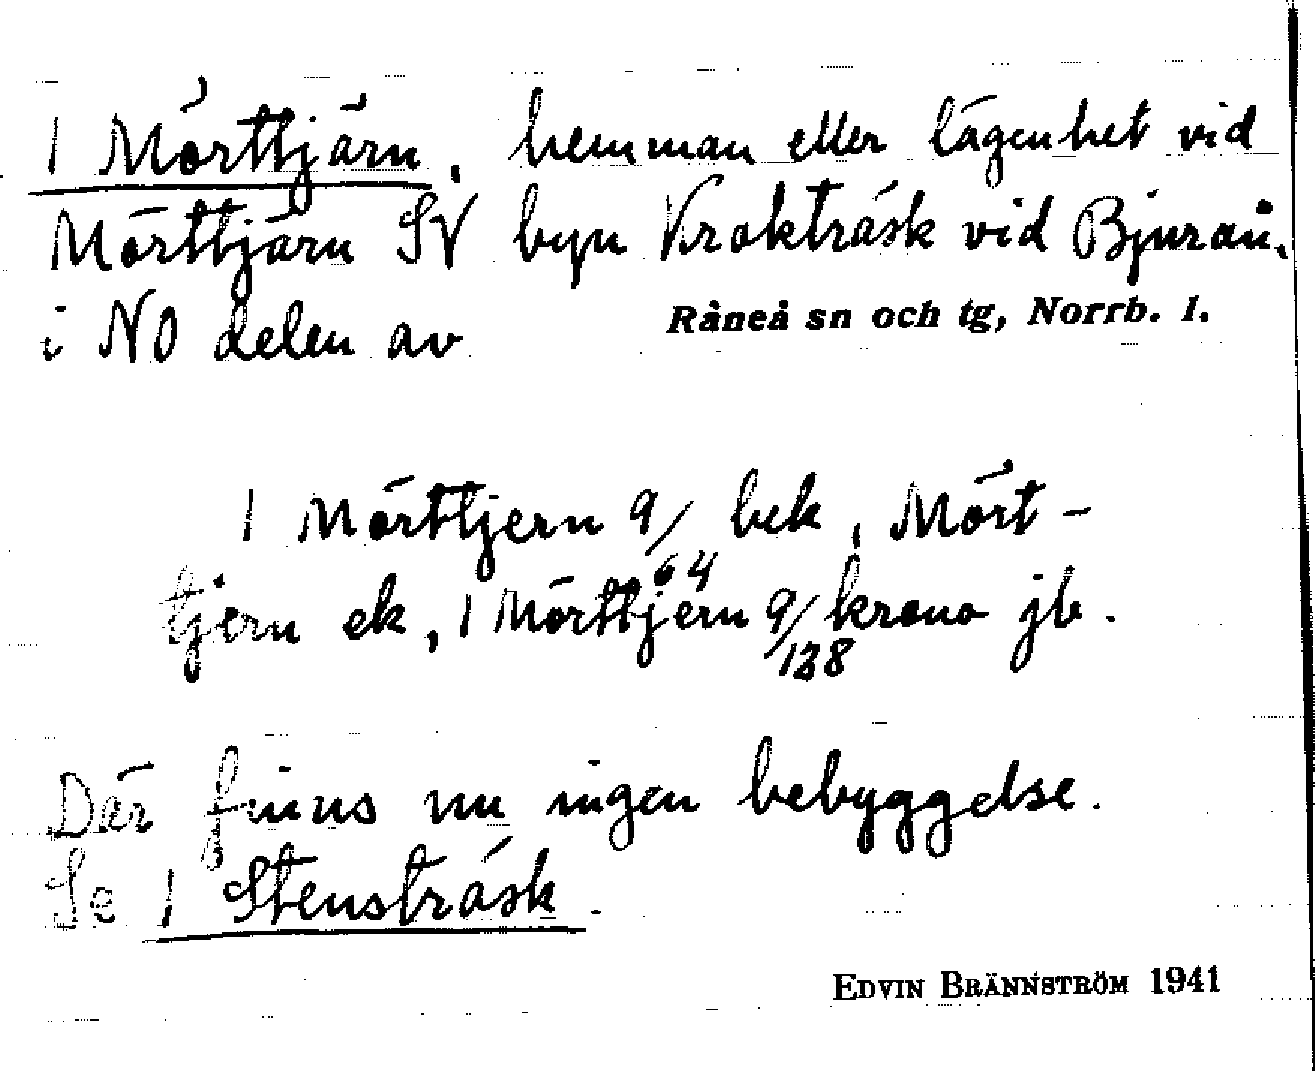 1 Mörttjärn, hemman eller lägenhet vid
Mörttjärn SV byn Krokträsk vid Bjurån,
i NO delen av Råneå sn och tg, Norrb. l.
1 Mörttjern 9/64 bek, Mört-
tjern ek, 1 Mörttjern 9/138 krono jb.
Där finns nu ingen bebyggelse.
Se 1 Stensträsk.
EDVIN BRÄNNSTRÖM 1941